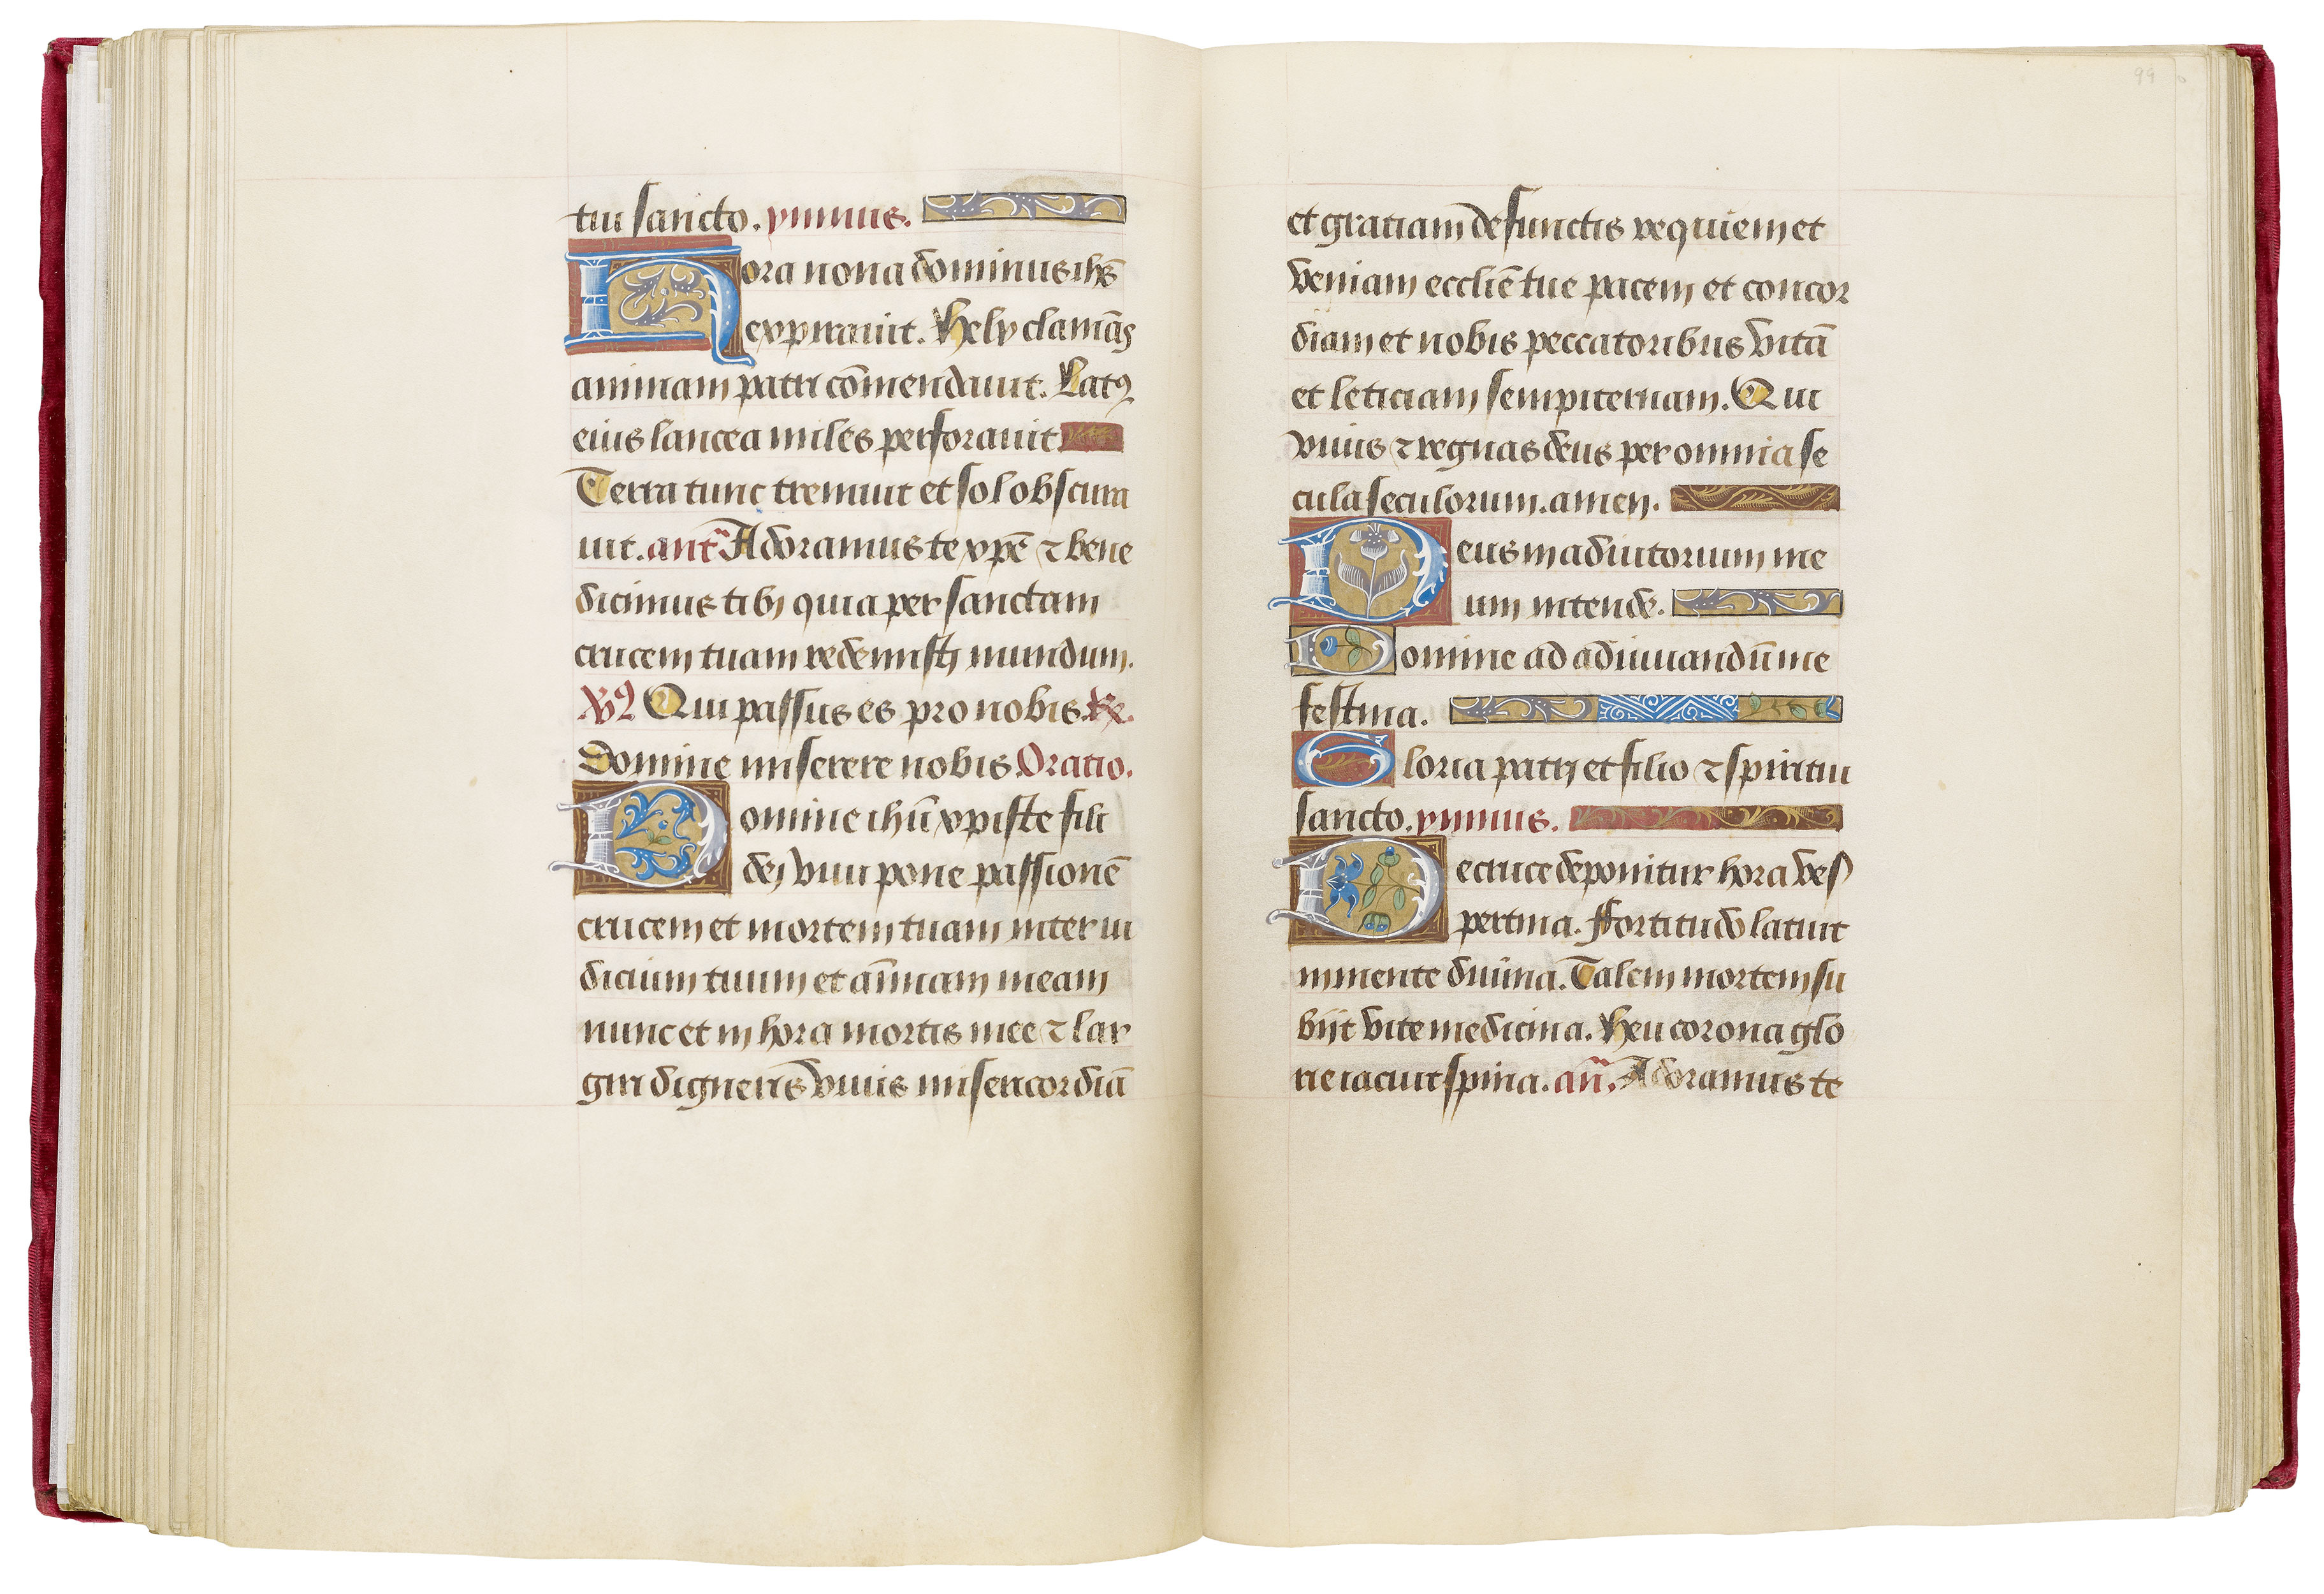 tui sancto. ymnus.
Hora nona dominus ihs̄
expirauit. Hely clamās
animam patri cōmendauit. Latꝰ
eius lancea miles perforauit
Terra tunc tremuit et sol obscura
uit. ant̄ Adoramus te xpē ⁊ bene
dicimus tibi quia per sanctam
crucem tuam redemisti mundum.
Qui passus es pro nobis. ℟.
Domine miserere nobis Oratio.
Domine ihū xpiste fili
dei viui pone passionē
crucem et mortem tuam inter iu
dicium tuum et aīmam meam
nunc et in hora mortis mee ⁊ lar
giri digneris viuis misericordiā
99
et gratiam defunctis requiem et
veniam ecclīē tue pacem et concor
diam et nobis peccatoribus vitā
et leticiam sempiternam. Qui
viuis ⁊ regnas deus per omnia se
cula seculorum. amen.
Deus in adiutorium me
um intende.
Domine ad adiuuandū me
festina.
Gloria patri et filio ⁊ spiritui
sancto. ymnus.
De cruce deponitur hora ves
pertina. Ffortitudo latuit
in mente diuina. Talem mortem su
biit vite medicina. Heu corona glo
rie iacuit spina. an̄. Adoramus te